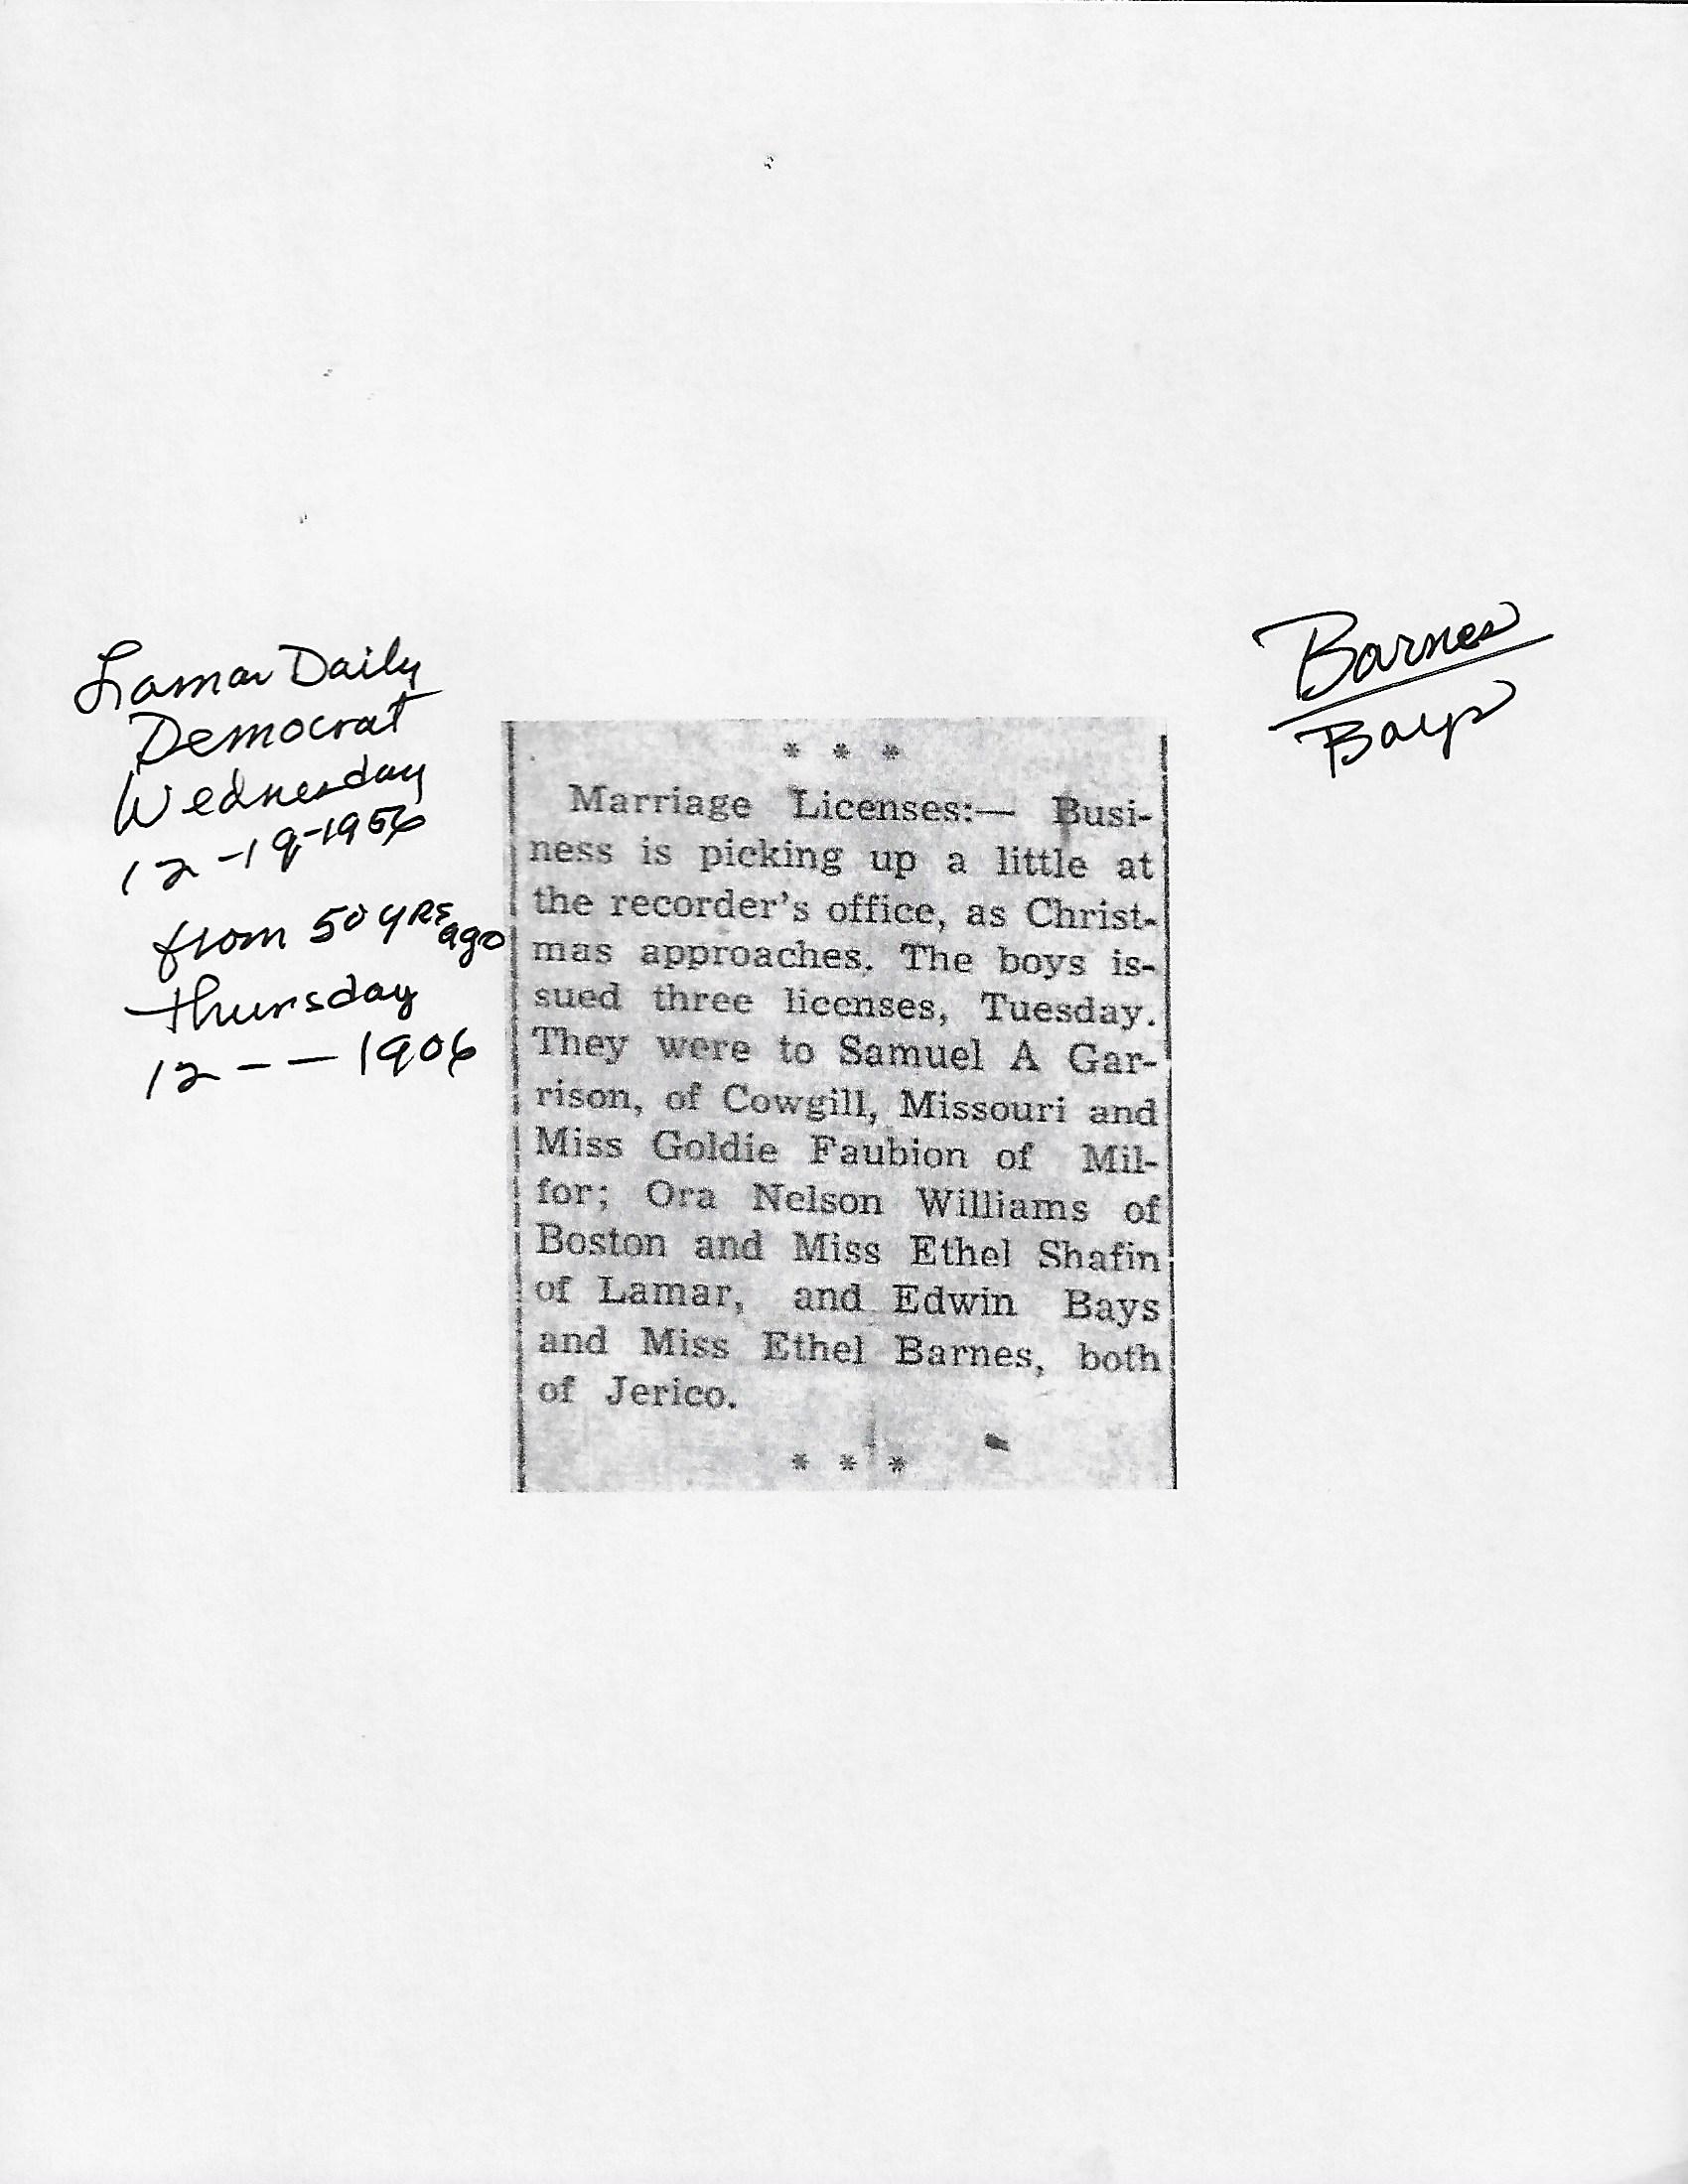 Lamar Daily
Democrat
Wednesday
12-19-1956
from 50 YRS ago
Thursday
12 - - 1906
Barnes
Bays
* * *
Marriage Licenses:— Busi-
ness is picking up a little at
the recorder's office, as Christ-
mas approaches. The boys is-
sued three licenses, Tuesday.
They were to Samuel A Gar-
rison, of Cowgill, Missouri and
Miss Goldie Faubion of Mil-
for; Ora Nelson Williams of
Boston and Miss Ethel Shafin
of Lamar, and Edwin Bays
and Miss Ethel Barnes, both
of Jerico.
* * *